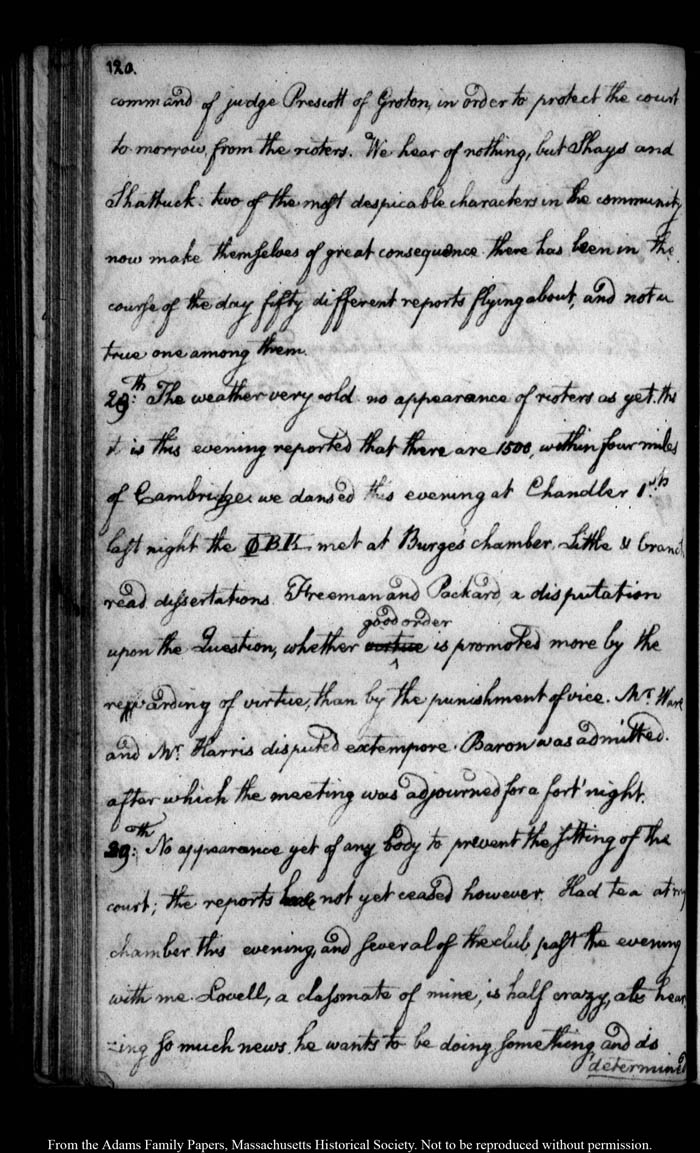 120.
command of judge Prescott of Groton, in order to protect the court
to-morrow, from the rioters. We hear of nothing, but Shays and
Shattuck: two of the most despicable characters in the community
now make themselves of great consequence. there has been in the
course of the day fifty different reports flying about, and not a
true one among them.
29th: The weather very cold. no appearance of rioters as yet. tho
it is this evening reported that there are 1500, within four miles
of Cambridge. we dansed this evening at Chandler 1st's
last night the ΦBK met at Burge's chamber. Little &
read dissertations. Freeman and Packard, a disputation
good order
upon the Question, whether virtue is promoted more by the
rewarding of virtue, than by the punishment of vice. Mr. Ware
and Mr. Harris disputed extempore. Baron was admitted.
after which the meeting was adjourned for a fort'night.
29th: No appearance yet of any body to prevent the sitting of the
court; the reports have not yet ceased however. Had tea at my
chamber this evening, and several of the club, past the evening
with me. Lovell, a classmate of mine, is half crazy, at hear
-ing so much news. he wants to be doing something, and is
determined
From the Adams Family Papers, Massachusetts Historical Society. Not to be reproduced without permission.